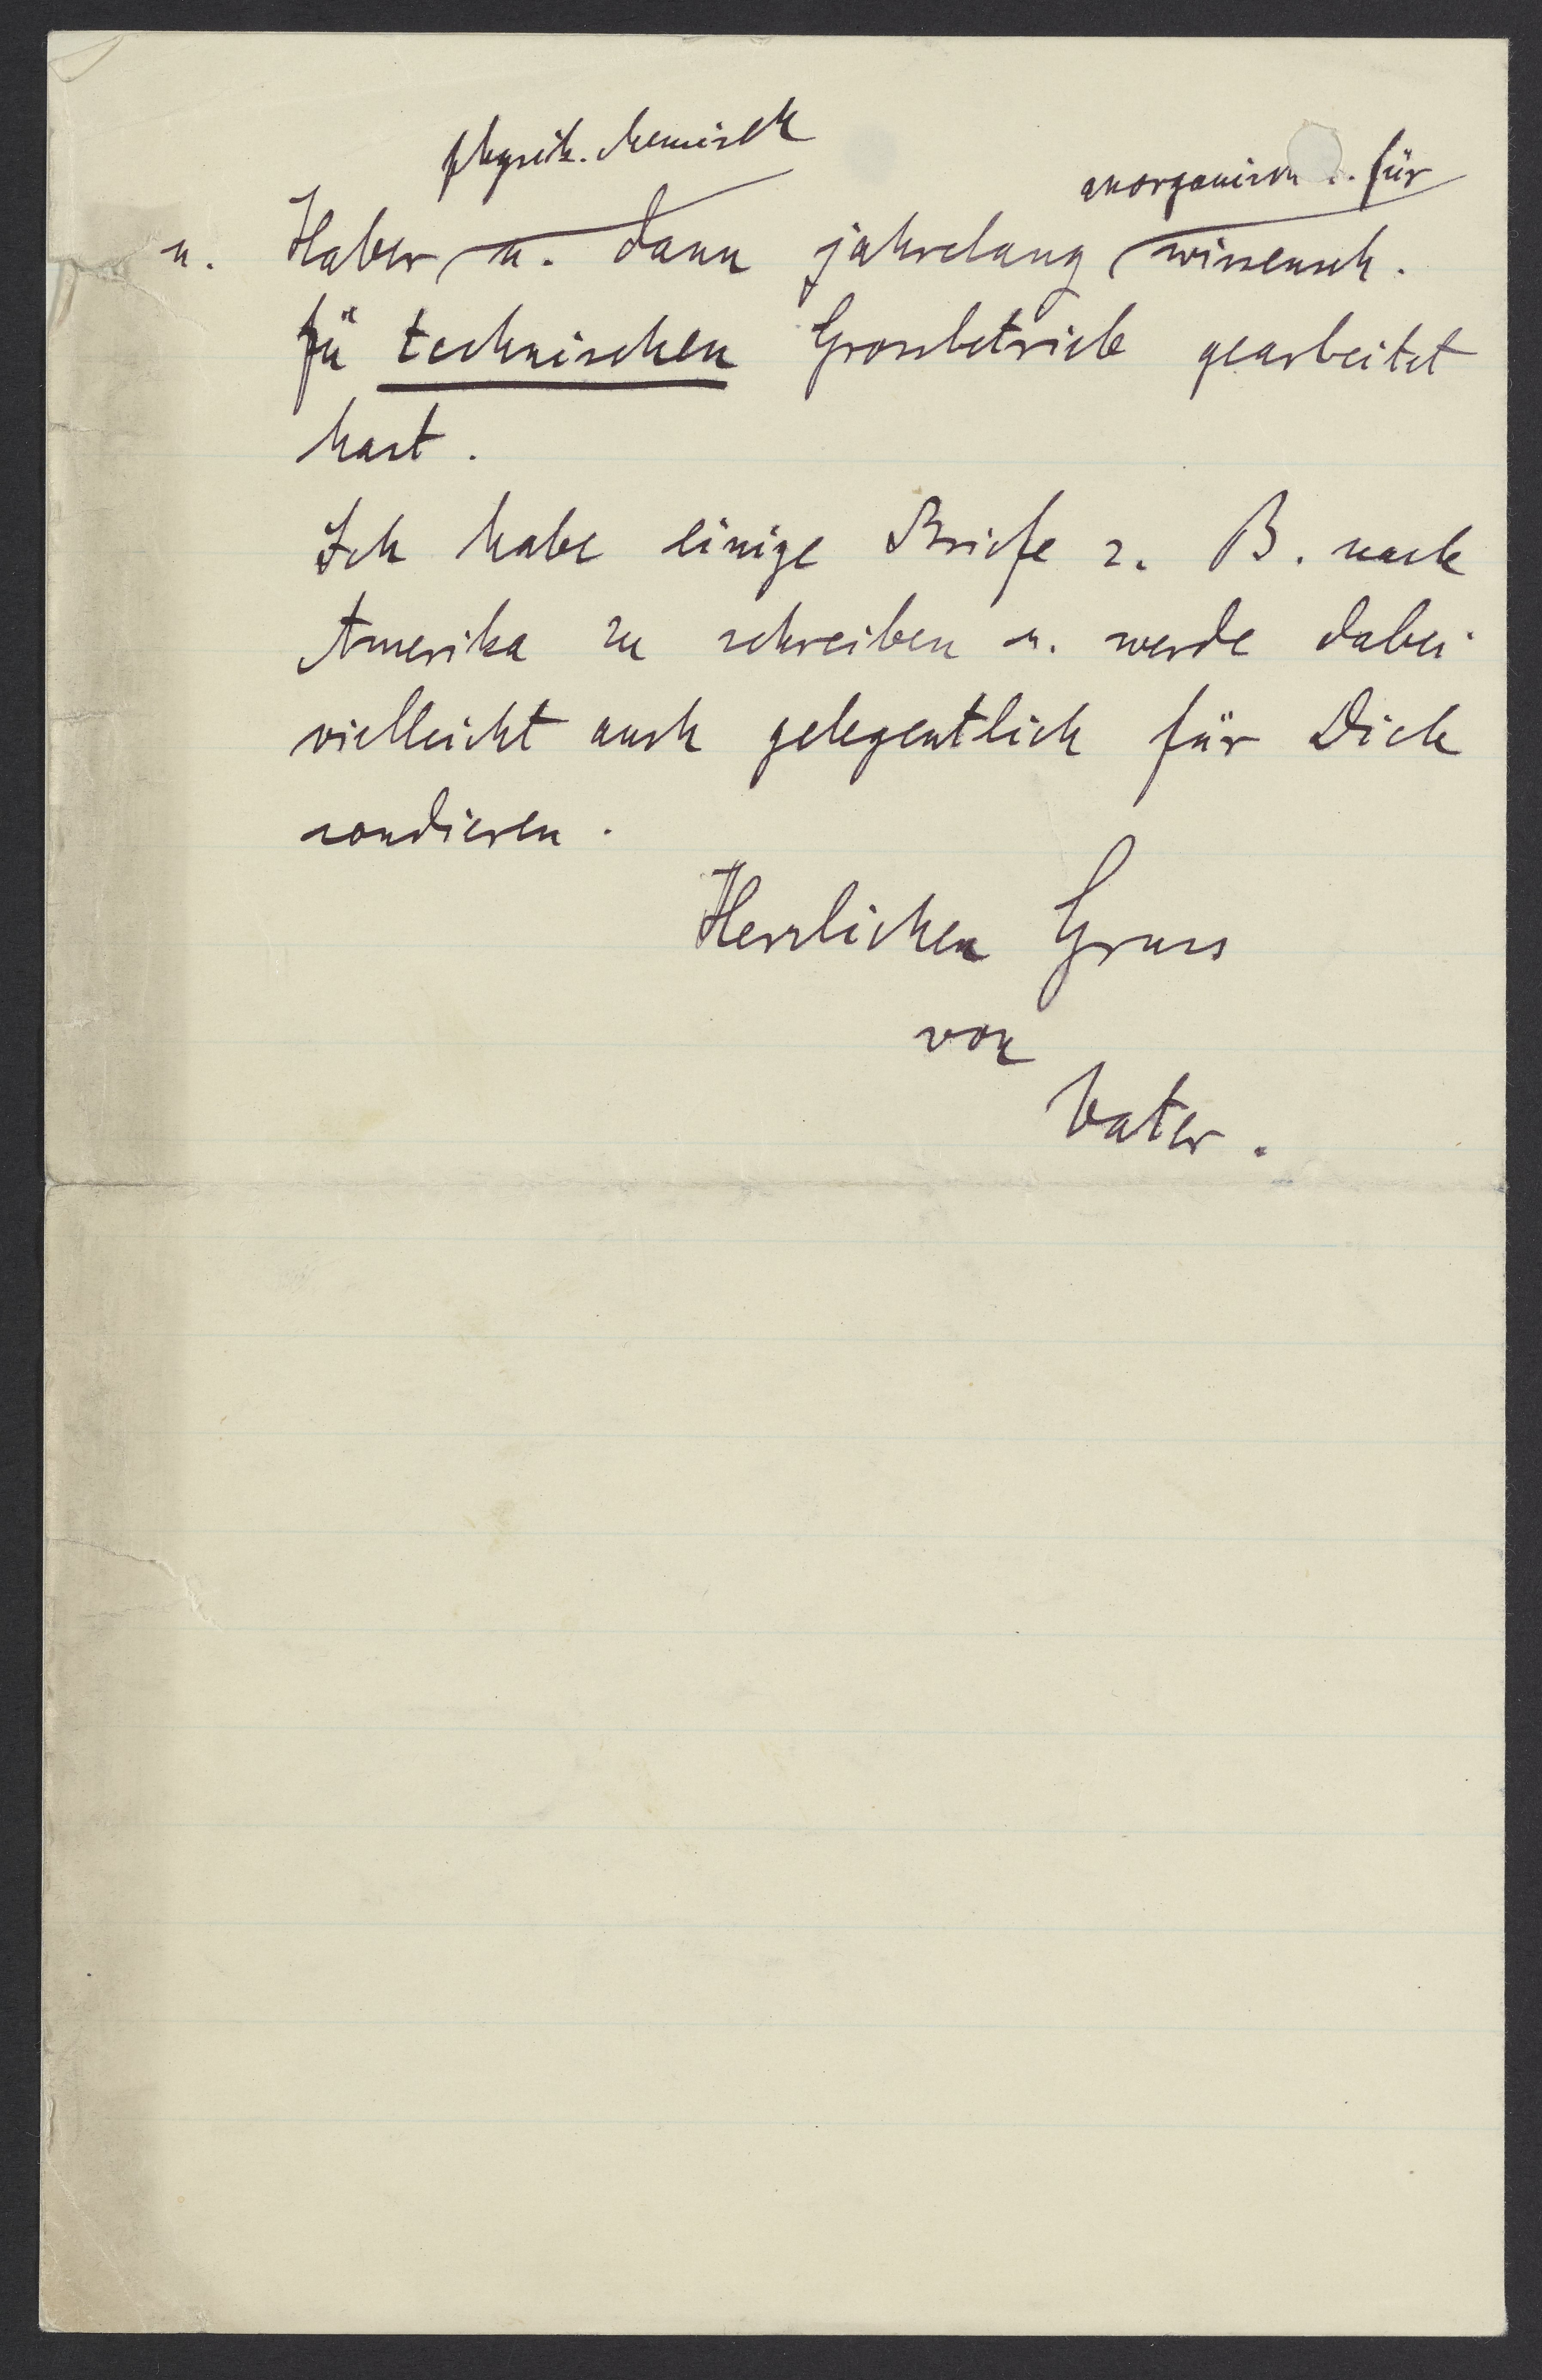 physik. chemisch
anorganisch u. für
u. Haber u. dann jahrelang wissensch.
für technischen Grossbetrieb gearbeitet
hast.
Ich habe einige Briefe z. B. nach
Amerika zu schreiben u. werde dabei
vielleicht auch gelegentlich für Dich
sondieren.
Herzlichen Gruss
von
Vater.